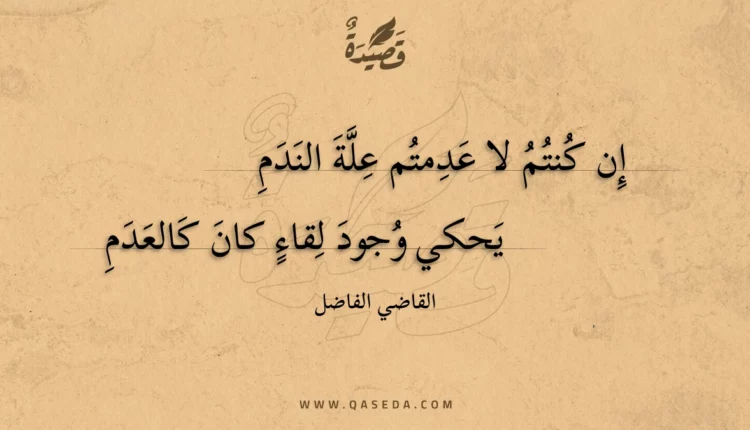 قَصِيدَةٌ
إِن كُنتُمُ لا عَدِمتُم عِلَّةَ النَدَمِ
يَحكي وُجودَ لِقاءٍ كانَ كَالعَدَمِ
القاضي الفاضل
WWW.QASEDA.COM